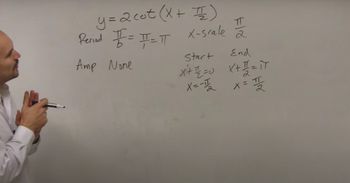 y = 2 cot (x + π/2)
Period π/b = π/1 = π x-scale π/2
Amp None Start End
x + π/2 = 0 x + π/2 = π
x = -π/2 x = π/2